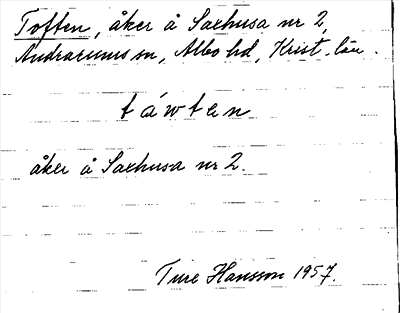 Toften, åker å Saxhusa nr 2,
Andrarums sn, Albo hd, Krist. län.
táwten
åker å Saxhusa nr 2.
Ture Hansson 1957.